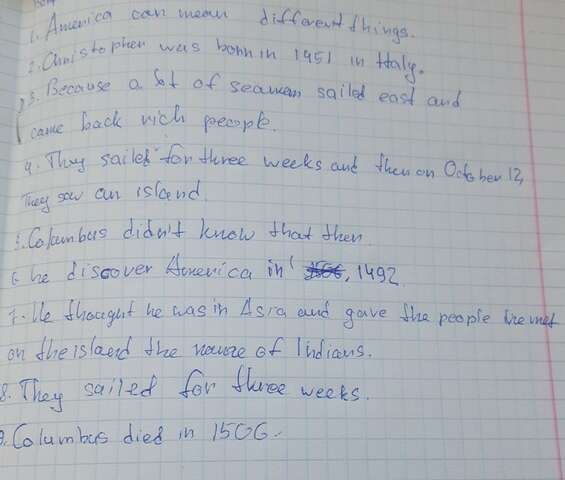 1. America can mean different things.
2. Christopher was born in 1951 in Italy.
3. Because a lot of seamen sailed east and
came back rich people.
4. They sailed for three weeks and then on October 12,
They saw an island.
5. Columbus didn't know that then.
6 he discover America in 1492.
7. He thought he was in Asia and gave the people he met
on the island the name of Indians.
8. They sailed for three weeks.
9. Columbus died in 1506.